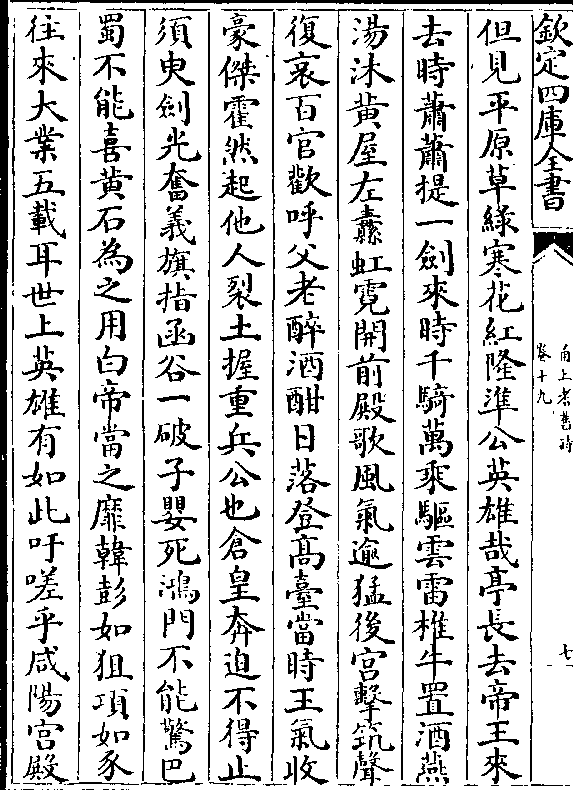 欽定四庫全書
卷十九
七
但見平原草緑寒花紅隆準公英雄哉亭長去帝王來
去時蕭蕭提一劍來時千騎萬乘驅雲雷椎牛置酒燕
湯沐黄屋左纛虹霓開前殿歌風氣逾猛後宫擊筑聲
復哀百官歡呼父老醉酒酣日落登髙臺當時王氣收
豪傑霍然起他人裂土握重兵公也倉皇奔迫不得止
須臾劍光奮義旗指函谷一破子嬰死鴻門不能驚巴
蜀不能喜黄石為之用白帝當之靡韓彭如狙項如豕
往來大業五載耳世上英雄有如此吁嗟乎咸陽宫殿